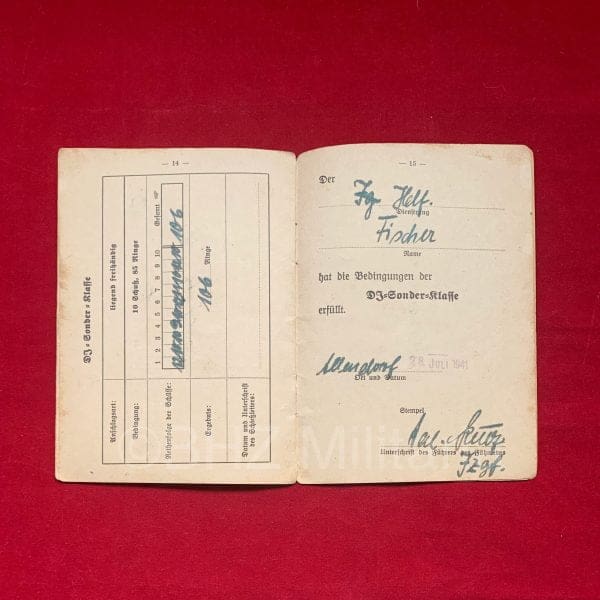 — 14 —
DJ-Sonder-Klasse
Anschlagsart: liegend freihändig
Bedingung: 10 Schuß, 85 Ringe
Reihenfolge der Schüsse: 1 2 3 4 5 6 7 8 9 10 Gesamt
106
Ergebnis: 106 Ringe
Datum und Unterschrift
des Schießleiters:
— 15 —
Der
Jg Helf.
Dienstrang
Fischer
Name
hat die Bedingungen der
DJ-Sonder-Klasse
erfüllt.
Allendorf 28 JULI 1941
Ort und Datum
Stempel
Unterschrift des Führers des Fähnleins
Jzgf.